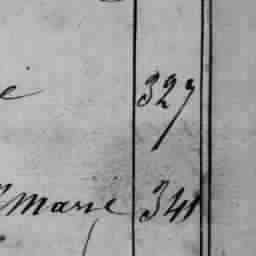 327
marie 341